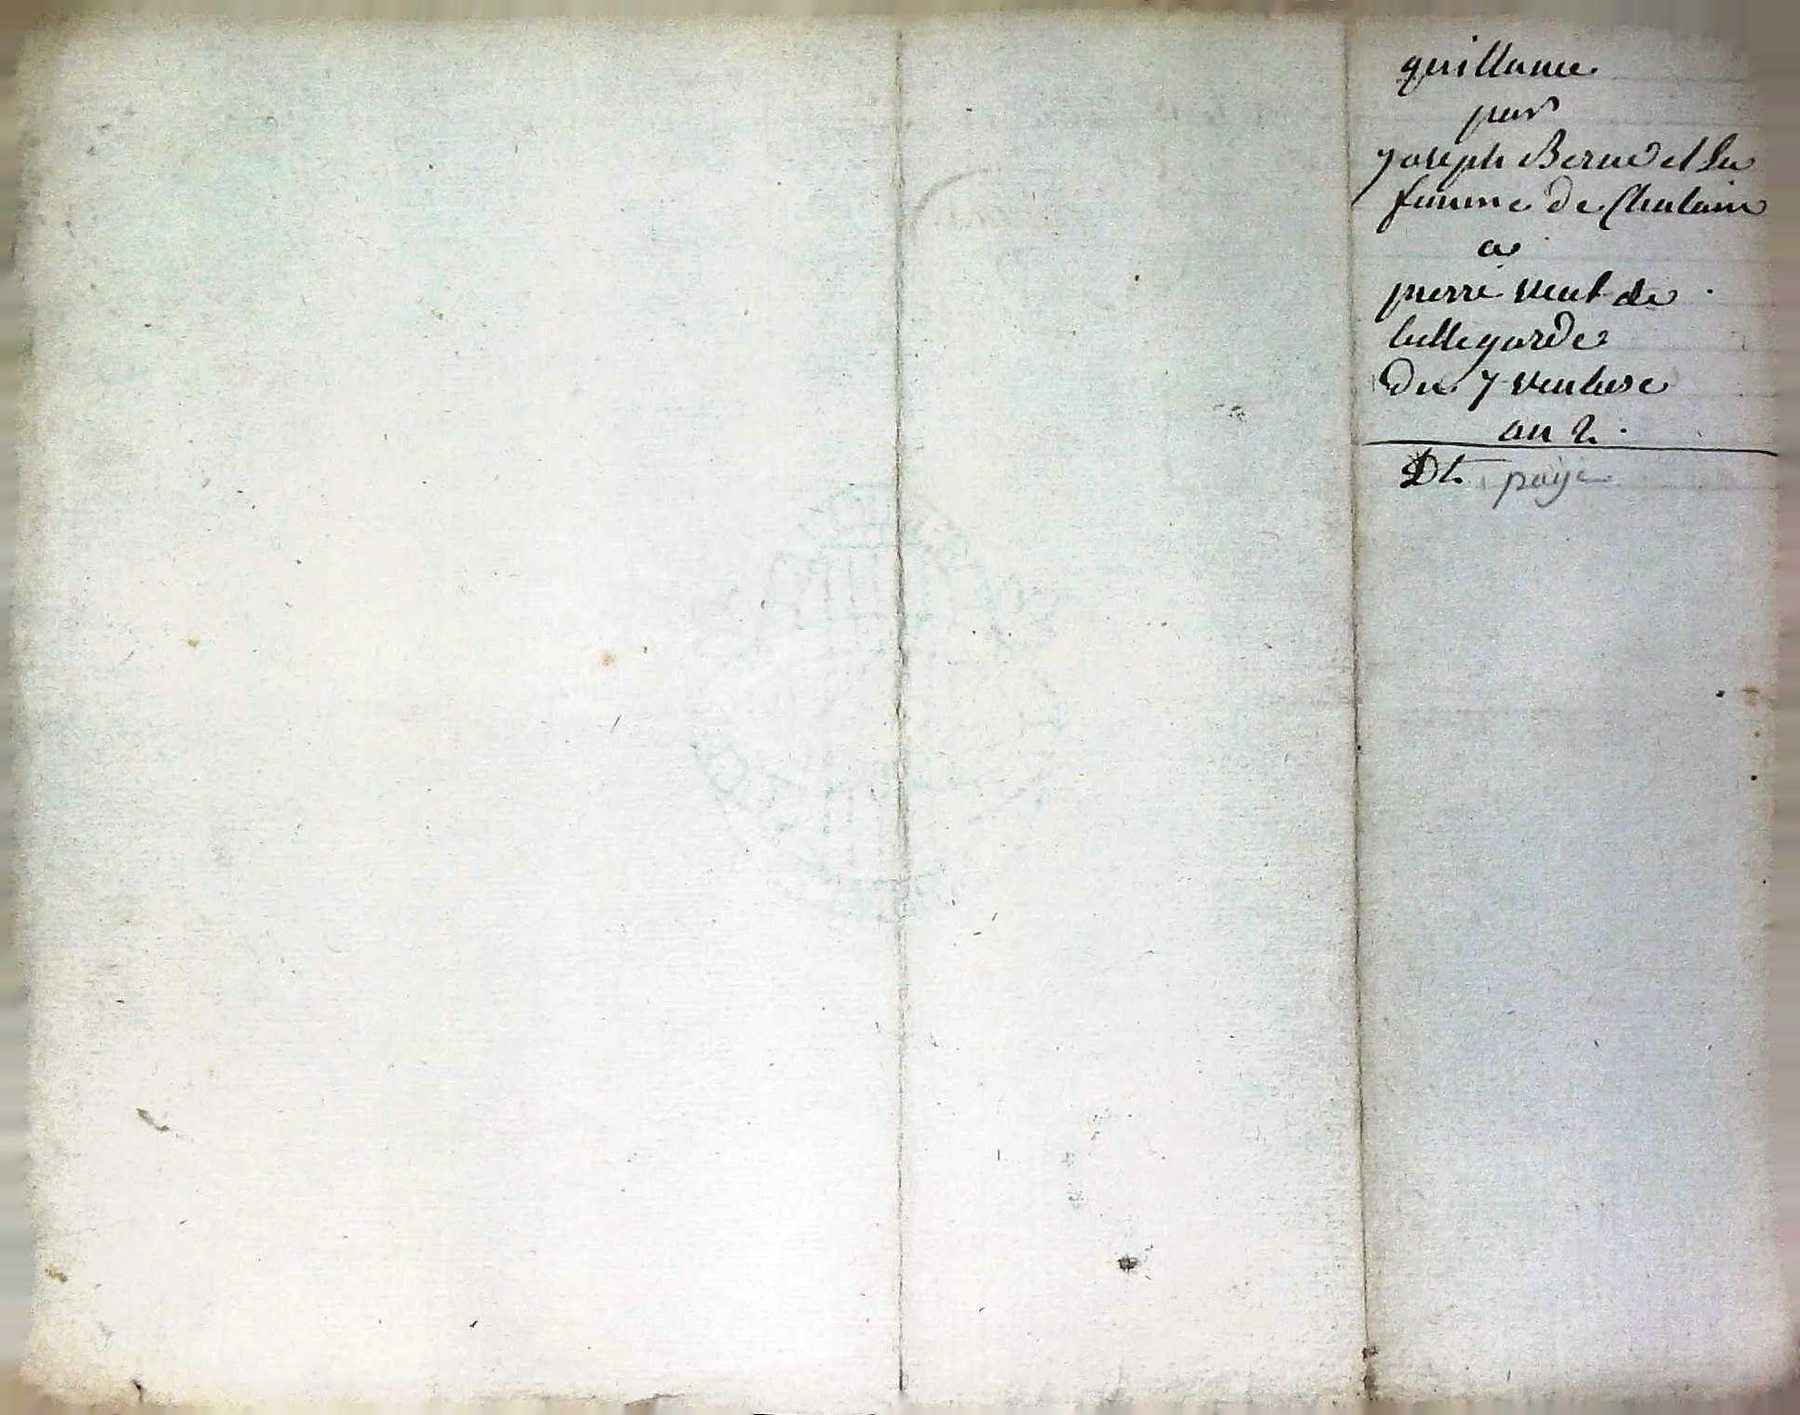 quittance
par
joseph Berud et sa
femme de Chalain
a
pierre viat de
bellegarde
du 7 ventose
an 2.
Dt. paye